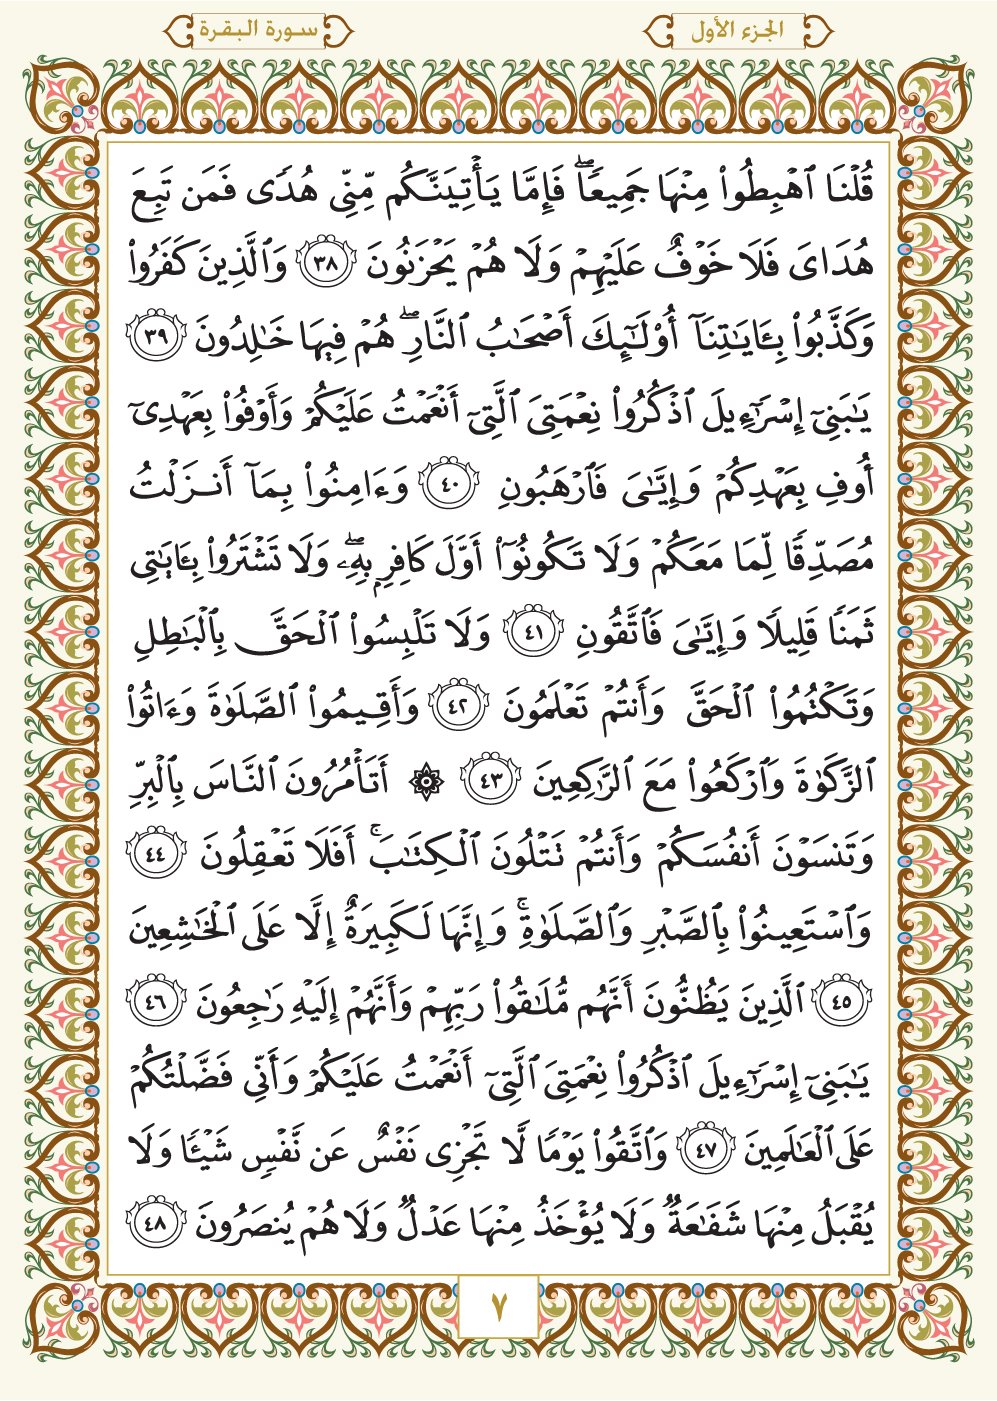 الجزء الأول
سورة البقرة
قُلْنَا ٱهْبِطُوا۟ مِنْهَا جَمِيعًۭا ۖ فَإِمَّا يَأْتِيَنَّكُم مِّنِّى هُدًۭى فَمَن تَبِعَ
هُدَاىَ فَلَا خَوْفٌ عَلَيْهِمْ وَلَا هُمْ يَحْزَنُونَ ٣٨ وَٱلَّذِينَ كَفَرُوا۟
وَكَذَّبُوا۟ بِـَٔايَـٰتِنَآ أُو۟لَـٰٓئِكَ أَصْحَـٰبُ ٱلنَّارِ ۖ هُمْ فِيهَا خَـٰلِدُونَ ٣٩
يَـٰبَنِىٓ إِسْرَٰٓءِيلَ ٱذْكُرُوا۟ نِعْمَتِىَ ٱلَّتِىٓ أَنْعَمْتُ عَلَيْكُمْ وَأَوْفُوا۟ بِعَهْدِىٓ
أُوفِ بِعَهْدِكُمْ وَإِيَّـٰىَ فَٱرْهَبُونِ ٤٠ وَءَامِنُوا۟ بِمَآ أَنزَلْتُ
مُصَدِّقًۭا لِّمَا مَعَكُمْ وَلَا تَكُونُوٓا۟ أَوَّلَ كَافِرٍۭ بِهِۦ ۖ وَلَا تَشْتَرُوا۟ بِـَٔايَـٰتِى
ثَمَنًۭا قَلِيلًۭا وَإِيَّـٰىَ فَٱتَّقُونِ ٤١ وَلَا تَلْبِسُوا۟ ٱلْحَقَّ بِٱلْبَـٰطِلِ
وَتَكْتُمُوا۟ ٱلْحَقَّ وَأَنتُمْ تَعْلَمُونَ ٤٢ وَأَقِيمُوا۟ ٱلصَّلَوٰةَ وَءَاتُوا۟
ٱلزَّكَوٰةَ وَٱرْكَعُوا۟ مَعَ ٱلرَّٰكِعِينَ ٤٣ ۞ أَتَأْمُرُونَ ٱلنَّاسَ بِٱلْبِرِّ
وَتَنسَوْنَ أَنفُسَكُمْ وَأَنتُمْ تَتْلُونَ ٱلْكِتَـٰبَ ۚ أَفَلَا تَعْقِلُونَ ٤٤
وَٱسْتَعِينُوا۟ بِٱلصَّبْرِ وَٱلصَّلَوٰةِ ۚ وَإِنَّهَا لَكَبِيرَةٌ إِلَّا عَلَى ٱلْخَـٰشِعِينَ
٤٥ ٱلَّذِينَ يَظُنُّونَ أَنَّهُم مُّلَـٰقُوا۟ رَبِّهِمْ وَأَنَّهُمْ إِلَيْهِ رَٰجِعُونَ ٤٦
يَـٰبَنِىٓ إِسْرَٰٓءِيلَ ٱذْكُرُوا۟ نِعْمَتِىَ ٱلَّتِىٓ أَنْعَمْتُ عَلَيْكُمْ وَأَنِّى فَضَّلْتُكُمْ
عَلَى ٱلْعَـٰلَمِينَ ٤٧ وَٱتَّقُوا۟ يَوْمًۭا لَّا تَجْزِى نَفْسٌ عَن نَّفْسٍۢ شَيْـًۭٔا وَلَا
يُقْبَلُ مِنْهَا شَفَـٰعَةٌۭ وَلَا يُؤْخَذُ مِنْهَا عَدْلٌۭ وَلَا هُمْ يُنصَرُونَ ٤٨
٧